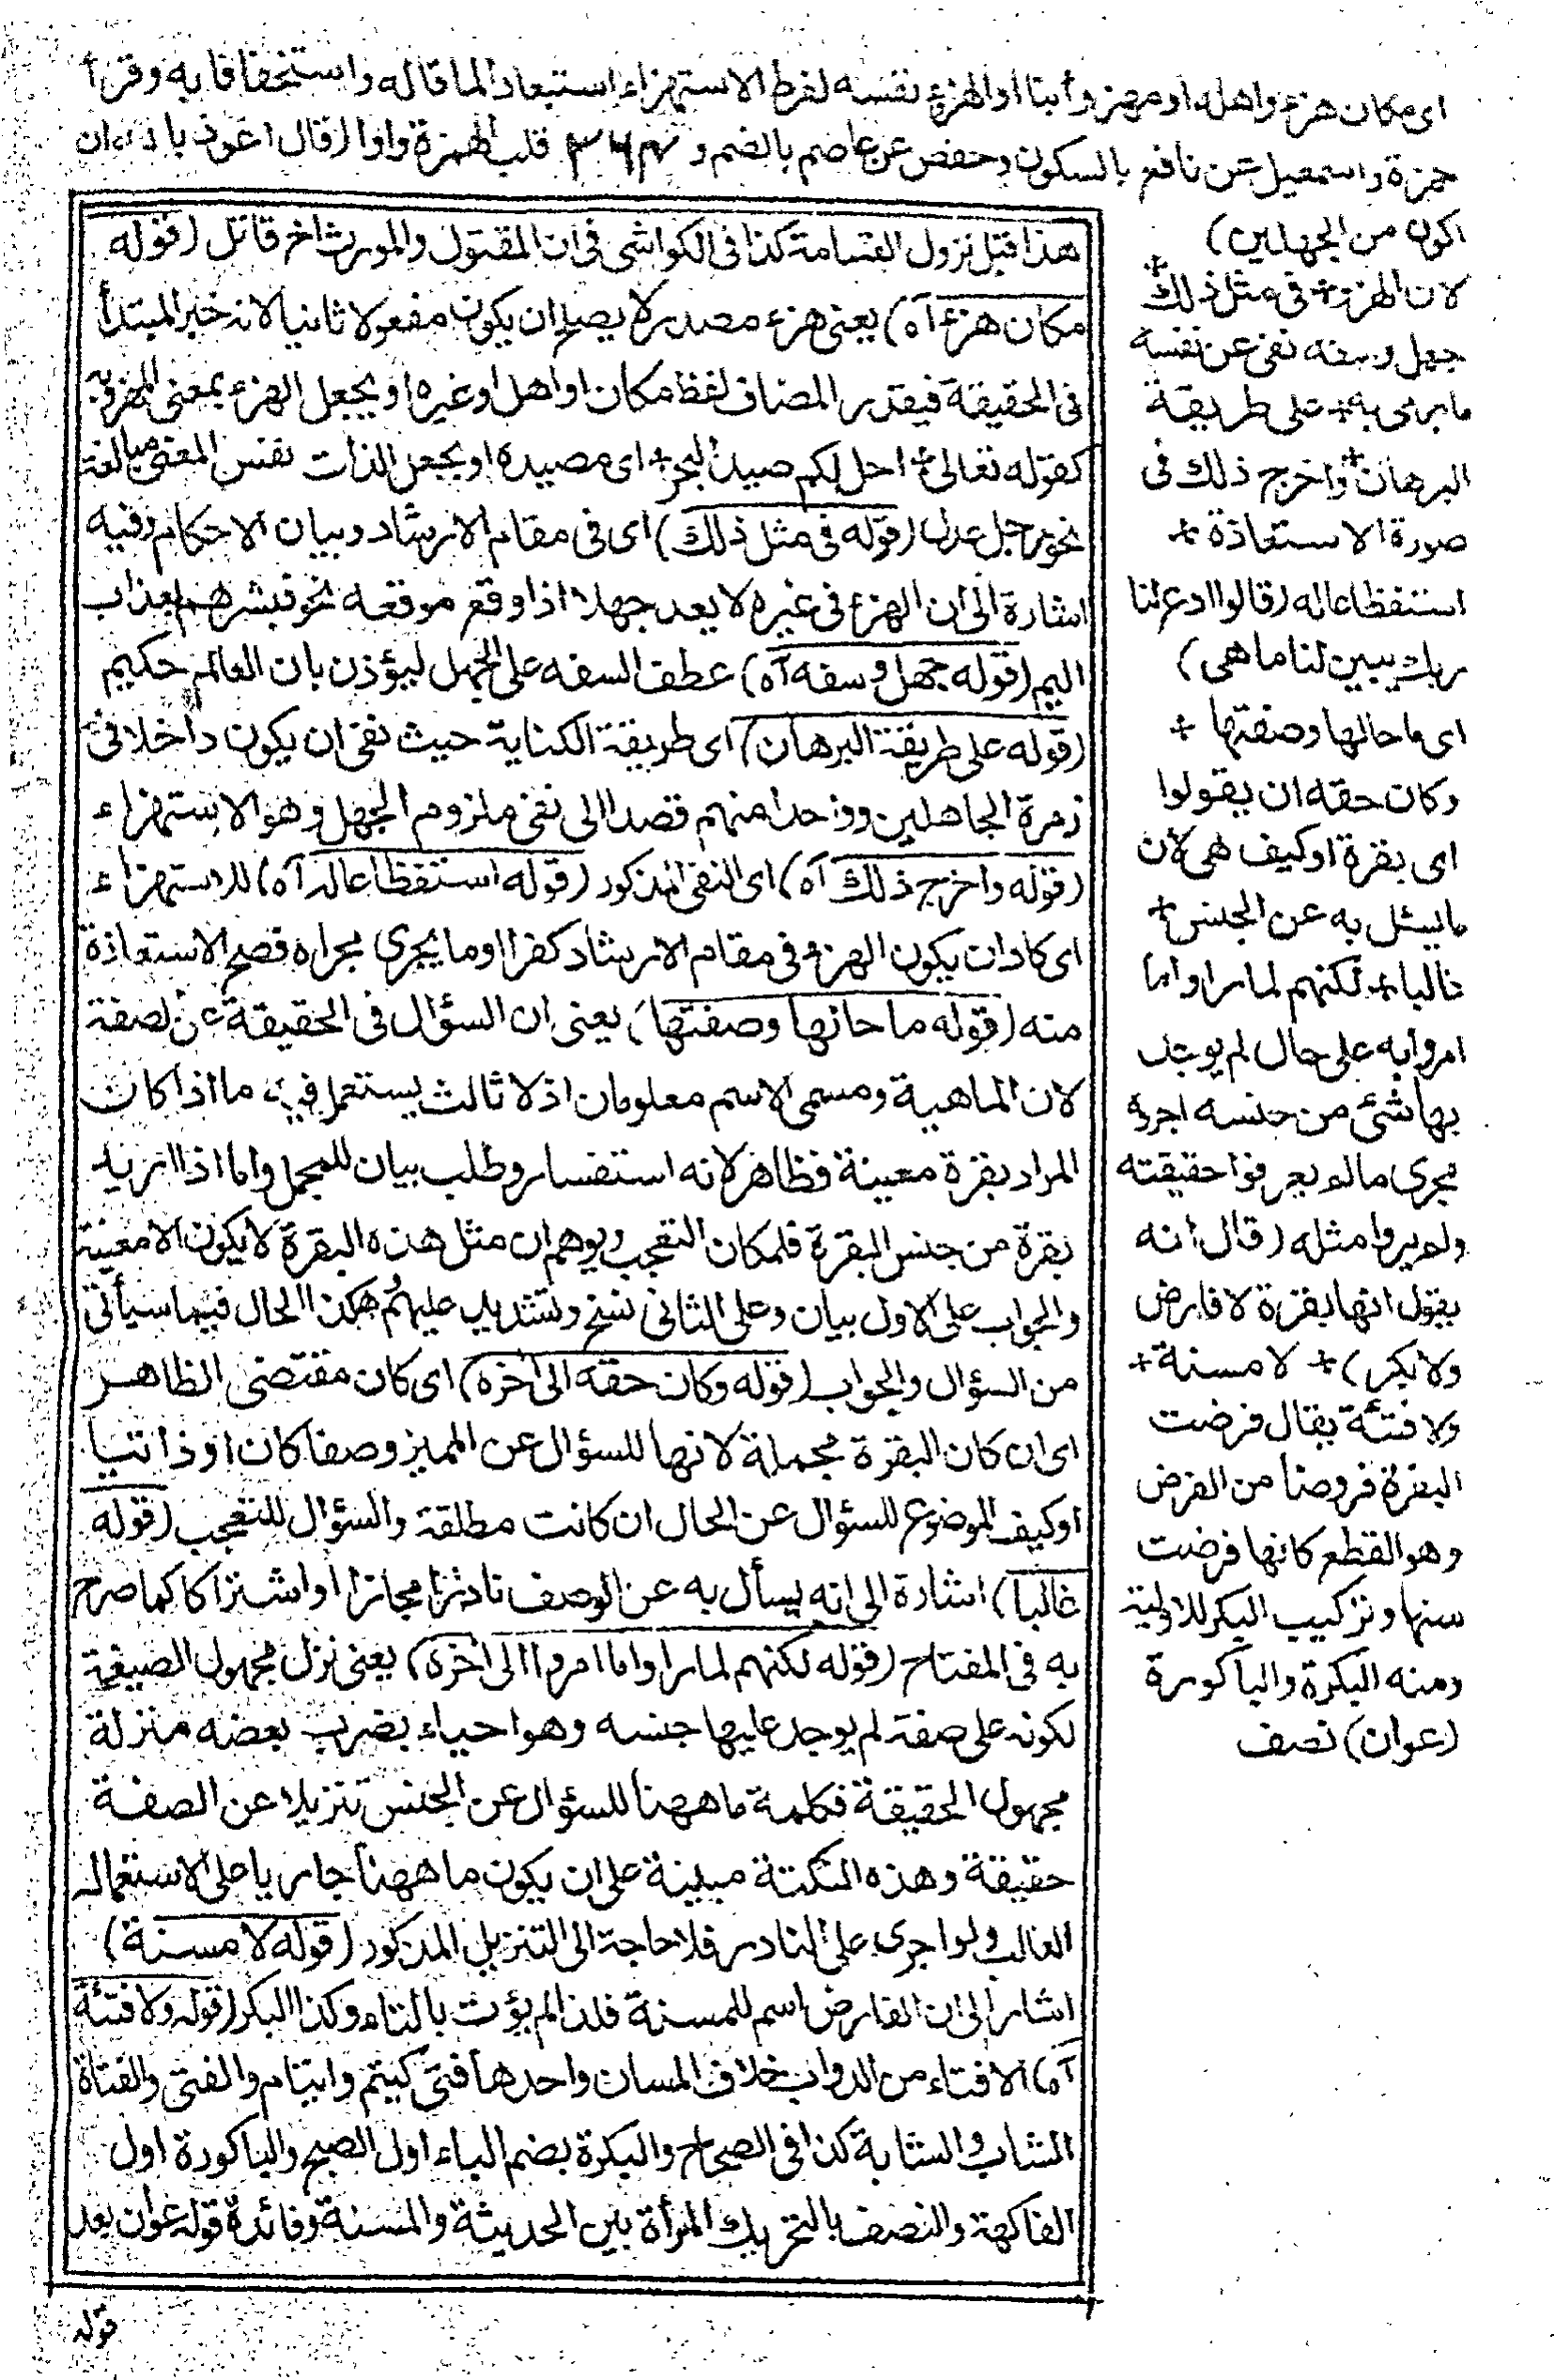 اى مكان هزء واهله او مهزوأبنا او الهزء نفسه لفرط الاستهزاء استبعادا لما قاله واستخفافا به وقرأ
حمزة واسمعيل عن نافع بالسكون وحفص عن عاصم بالضم و ٣٦٣ قلب الهمزة واوا (قال اعوذ بالله ان
اكون من الجهلين)
لان الهزء + فى مثل ذلك +
جهل وسفه نفى عن نفسه
ما رمى به + على طريقة
البرهان + واخرج ذلك فى
صورة الاستعاذة +
استفظاعا له (قالوا ادع لنا
ربك يبين لنا ما هى)
اى ما حالها وصفتها +
وكان حقه ان يقولوا
اى بقرة او كيف هى لان
ما يسئل به عن الجنس +
غالبا + لكنهم لما راوا ما
امروا به على حال لم يوجد
بها شئ من جنسه اجروه
مجرى ما لم يعرفوا حقيقته
ولم يروا مثله (قال انه
يقول انها بقرة لا فارض
ولا بكر) + لا مسنة +
ولا فتئة يقال فرضت
البقرة فروضا من الفرض
وهو القطع كانها فرضت
سنها وتركيب البكر للاولية
ومنه البكرة والباكورة
(عوان) نصف
هذا قبل نزول القسامة كذا فى الكواشى فى ان المقتول والمورث اخر قاتل (قوله
مكان هزء آه) يعنى هزء مصدر لا يصلح ان يكون مفعولا ثانيا لانه خبر المبتدأ
فى الحقيقة فيقدر المضاف لفظ مكان او اهل او غيره او يجعل الهزء بمعنى المهزو به
كقوله تعالى + احل لكم صيد البحر + اى مصيده او يجعل الذات نفس المعنى مبالغة
نحو رجل عدل (قوله فى مثل ذلك) اى فى مقام الارشاد وبيان الاحكام وفيه
اشارة الى ان الهزء فى غيره لا يعد جهلا اذا وقع موقعه نحو فبشرهم بعذاب
اليم (قوله جهل وسفه آه) عطف السفه على الجهل ليؤذن بان العالم حكيم
(قوله على طريقة البرهان) اى طريقة الكناية حيث نفى ان يكون داخلا فى
زمرة الجاهلين وواحدا منهم قصدا الى نفى ملزوم الجهل وهو الاستهزاء
(قوله واخرج ذلك آه) اى النفى المذكور (قوله استفظاعا له آه) للاستهزاء
اى كاد ان يكون الهزء فى مقام الارشاد كفرا او ما يجرى مجراه فصح الاستعاذة
منه (قوله ما حالها وصفتها) يعنى ان السؤال فى الحقيقة عن الصفة
لان الماهية ومسمى الاسم معلومان اذ لا ثالث يستعمل فيه ما اذا كان
المراد بقرة معينة فظاهر لانه استفسار وطلب بيان للمجمل واما اذا اريد
بقرة من جنس البقرة فلمكان التعجب ويوهم ان مثل هذه البقرة لا يكون الا معينة
والجواب على الاول بيان وعلى الثانى نسخ وتشديد عليهم هكذا الحال فيما سيأتى
من السؤال والجواب (قوله وكان حقه الى اخره) اى كان مقتضى الظاهر
اى ان كان البقرة مجملة لانها للسؤال عن المميز وصفا كان او ذاتيا
او كيف الموضوع للسؤال عن الحال ان كانت مطلقة والسؤال للتعجب (قوله
غالبا) اشارة الى انه يسأل به عن الوصف نادرا مجازا او اشتراكا كما صرح
به فى المفتاح (قوله لكنهم لما راوا ما امروا الى اخره) يعنى نزل مجهول الصيغة
لكونه على صفة لم يوجد عليها جنسه وهو احياء بضرب بعضه منزلة
مجهول الحقيقة فكلمة ما ههنا للسؤال عن الجنس تنزيلا عن الصفة
حقيقة وهذه النكتة مبينة على ان يكون ما ههنا جاريا على الاستعمال
الغالب ولو اجرى على النادر فلا حاجة الى التنزيل المذكور (قوله لا مسنة)
اشار الى ان الفارض اسم للمسنة فلذا لم يؤنث بالتاء وكذا البكر (قوله ولا فتئة
آه) الافتاء من الدواب خلاف المسان واحدها فتى كيتم وايتام والفتى والفتاة
الشاب والشابة كذا فى الصحاح والبكرة بضم الباء اول الصبح والباكورة اول
الفاكهة والنصف بالتحريك المرأة بين الحديثة والمسنة وفائدة قوله عوان بعد
قوله